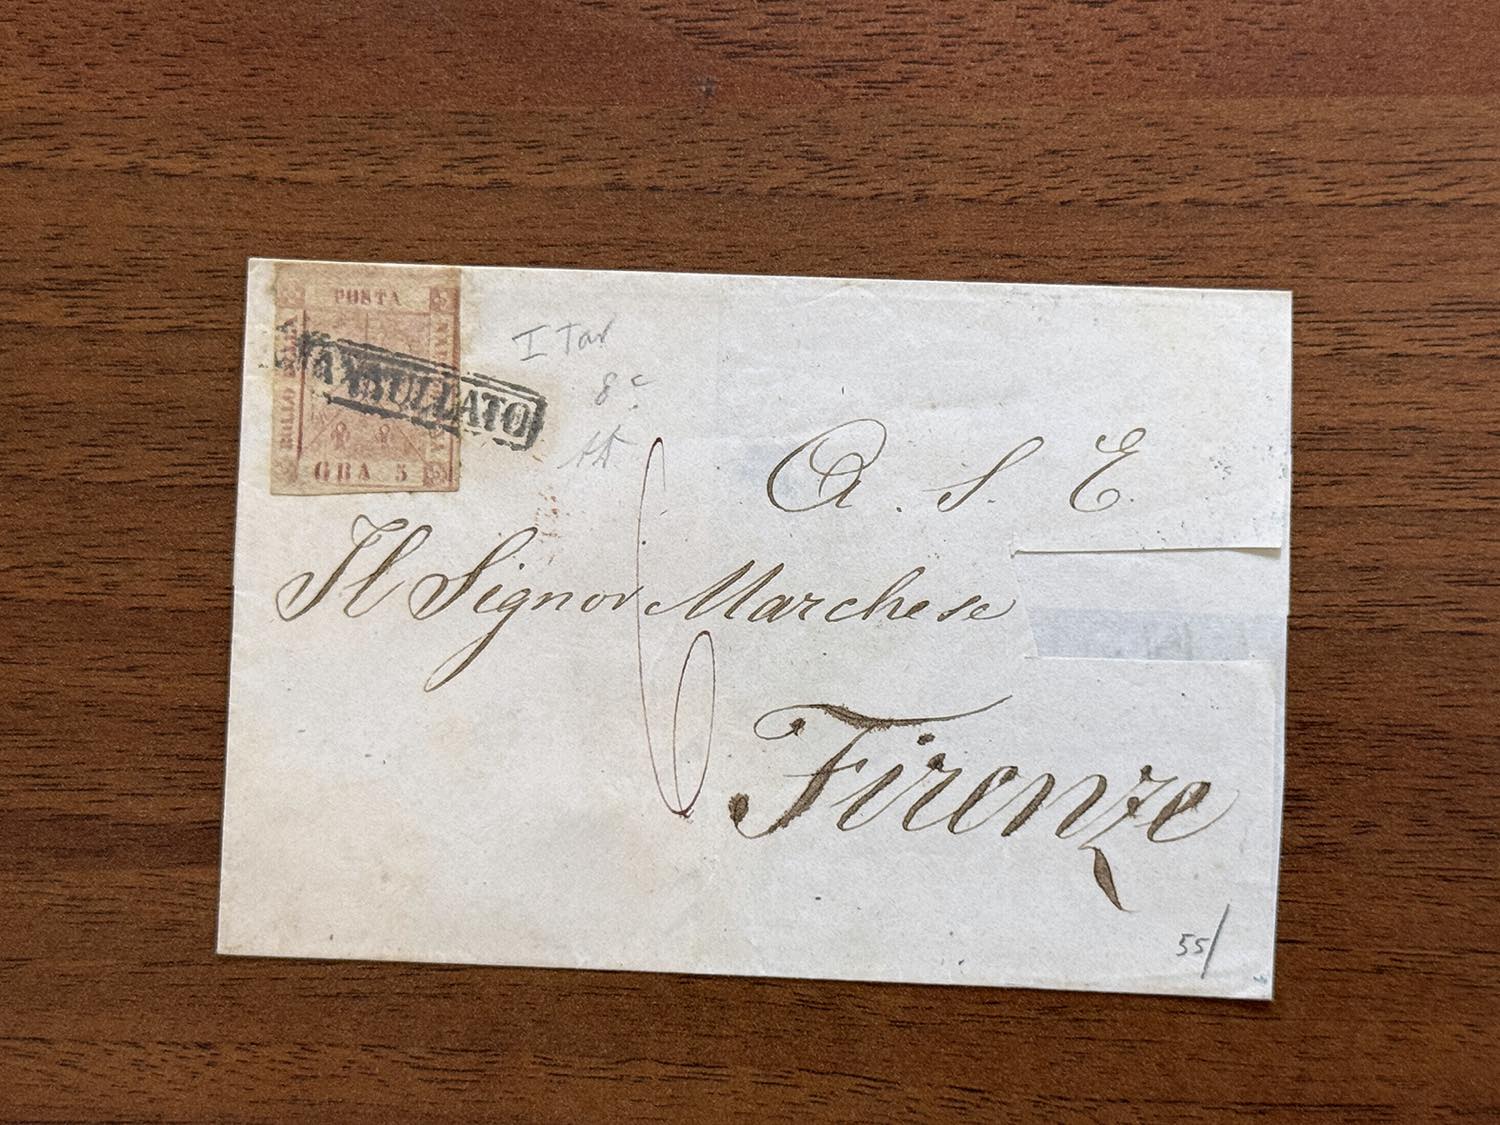 POSTA
BOLLO DELLA
NAPOLETANA
GRA 5
ANNULLATO
I Tav
8 c
6
A. S. E.
Il Signor Marchese
Firenze
55/